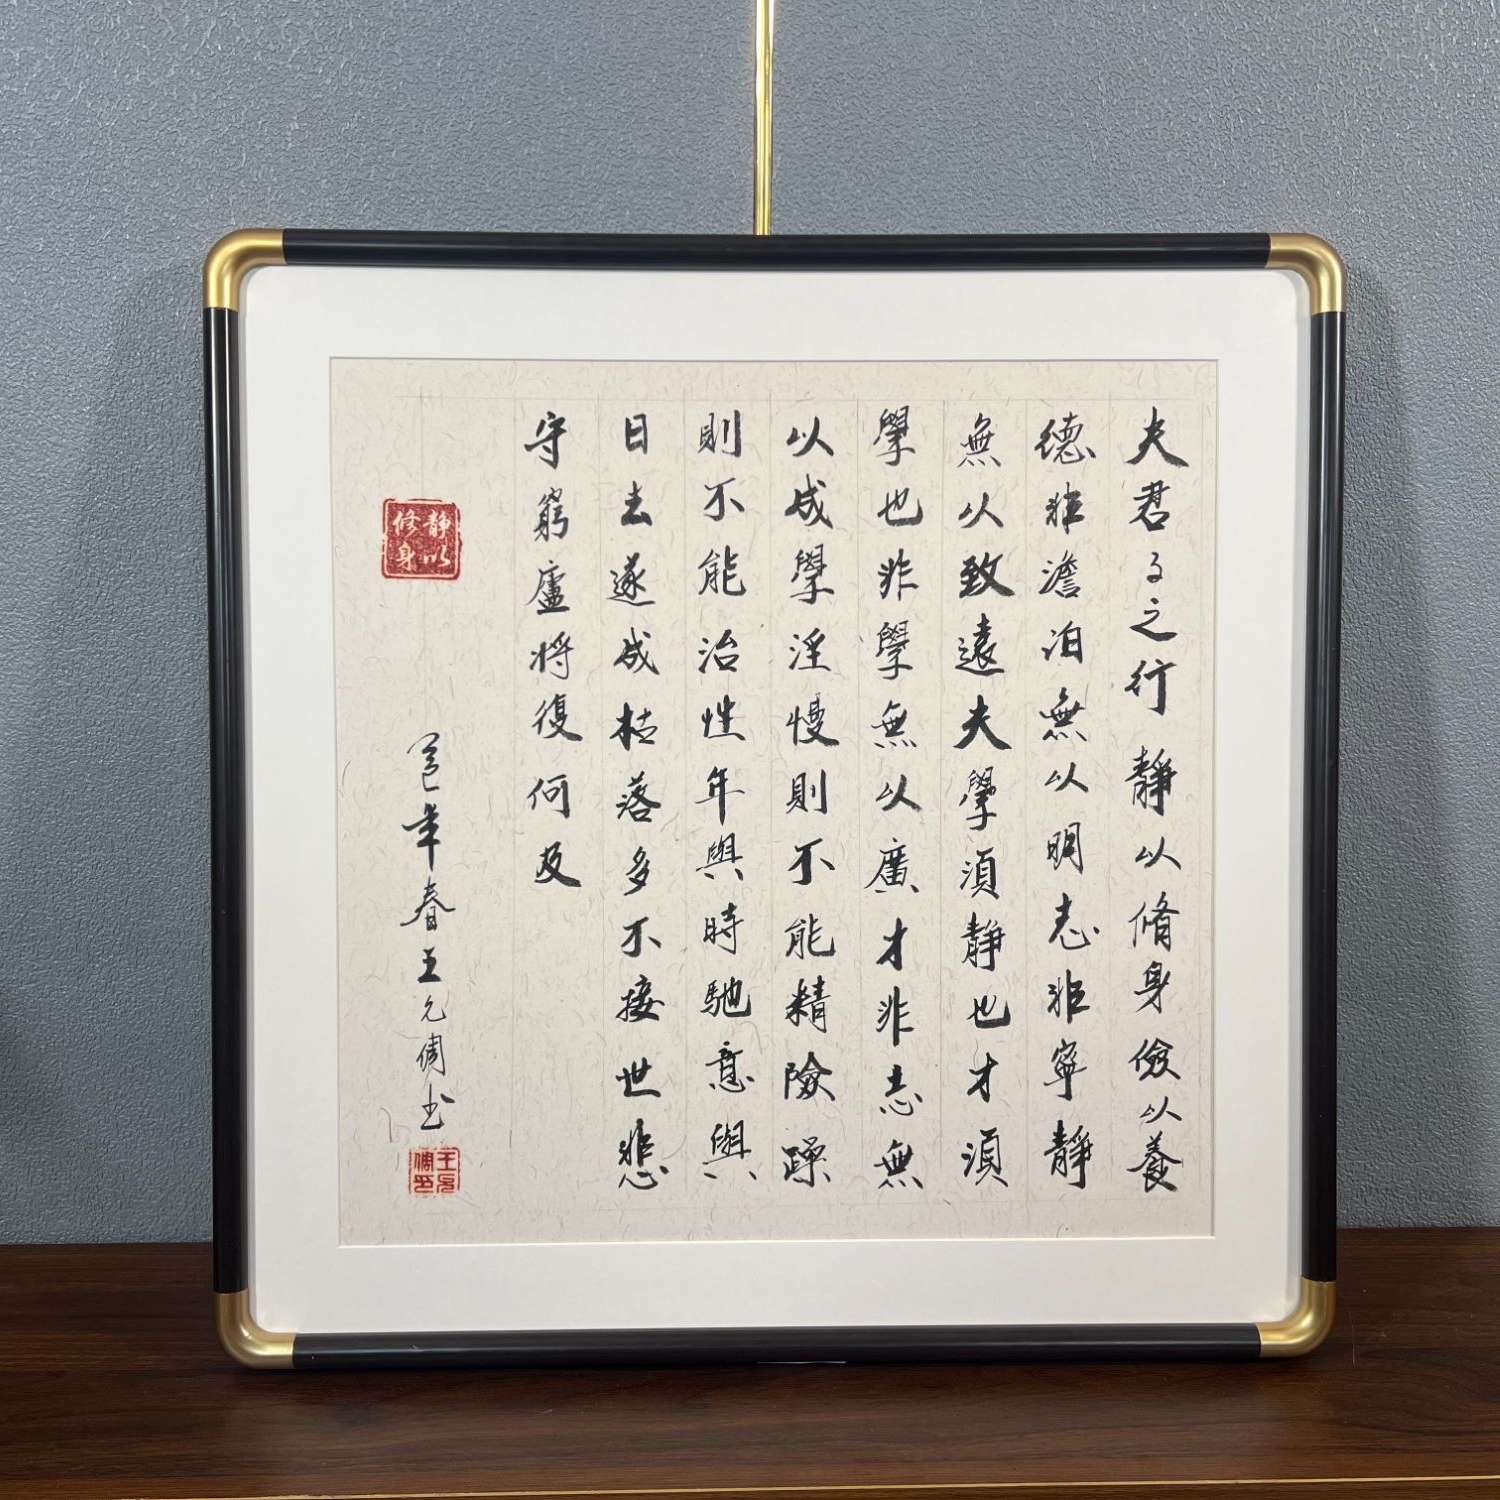 夫君子之行靜以脩身儉以養
德非澹泊無以明志非寧靜
無以致遠夫學須靜也才須
學也非學無以廣才非志無
以成學淫慢則不能精險躁
則不能治性年與時馳意與
日去遂成枯落多不接世悲
守窮廬將復何及
年春王元倜书
靜以修身